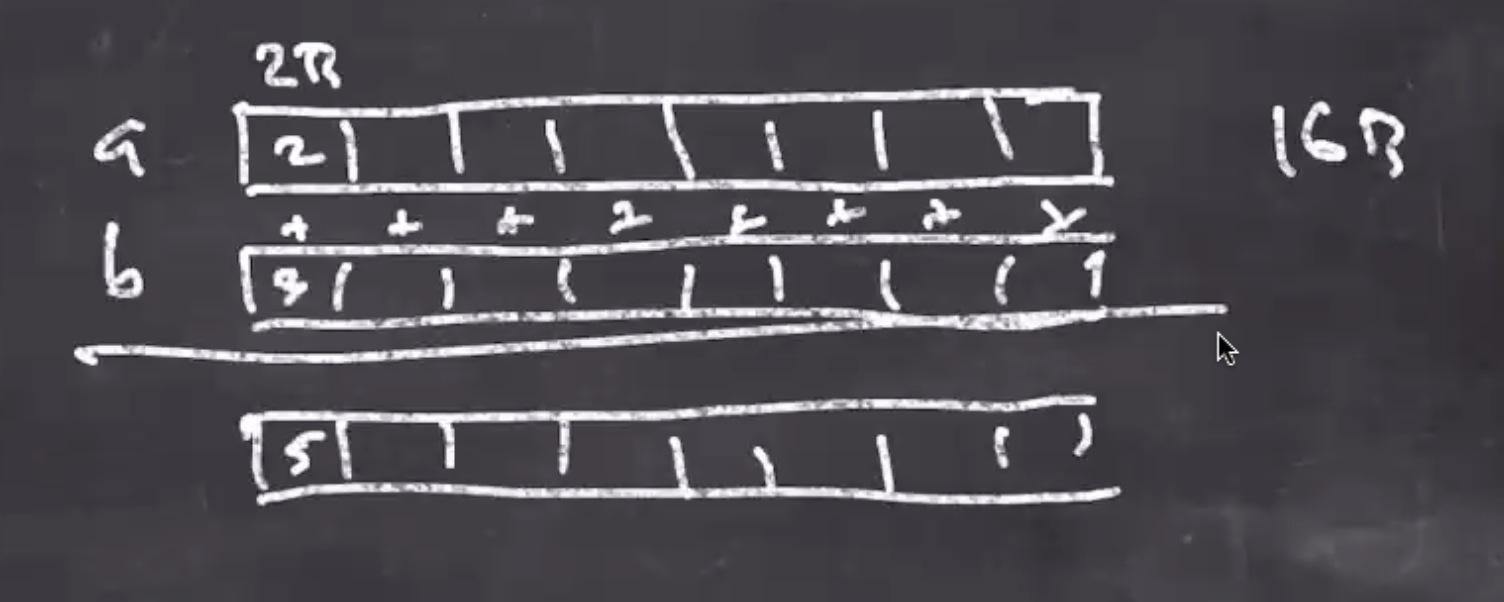 2B
a 2 16B
+ + + + + + + +
b 3
5